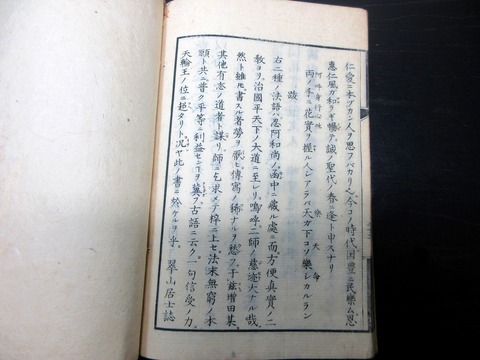 仁愛ニ本ヅカニ人ヲ思フバカリ也今コノ時代国豊ニ民楽ム恩
恵仁風ガ和ラギ暢テ誠ノ聖代ノ春ニ逢ト申スナリ
阿吽身行心味 楽天命
両ノ手ニ花實ヲ握ル人シアラバ天ガ下コソ樂シカルラン
跋
右二種ノ法語ハ忍阿和尚ノ函中ニ藏ル處ニ而方便真実ノ二
教ヨリ治國平天下ノ大道ニ至レリ嗚呼二師ノ慈迹大ナル哉
然ト雖𪜈書スル者勞ヲ厭ヒ傳寫ノ稀ナルヲ愁フ于茲増田某
其他有志ノ道者ト謀リ師ニ乞求メテ梓ニ上セ法末無窮ノ本
願ト共ニ普ク平等ニ利益センヿヲ冀フ古語ニ云ク一句信受ノ力
天輪王ノ位ニ超タリト况ヤ此ノ書ニ於ケルヲヤ 翠山居士誌